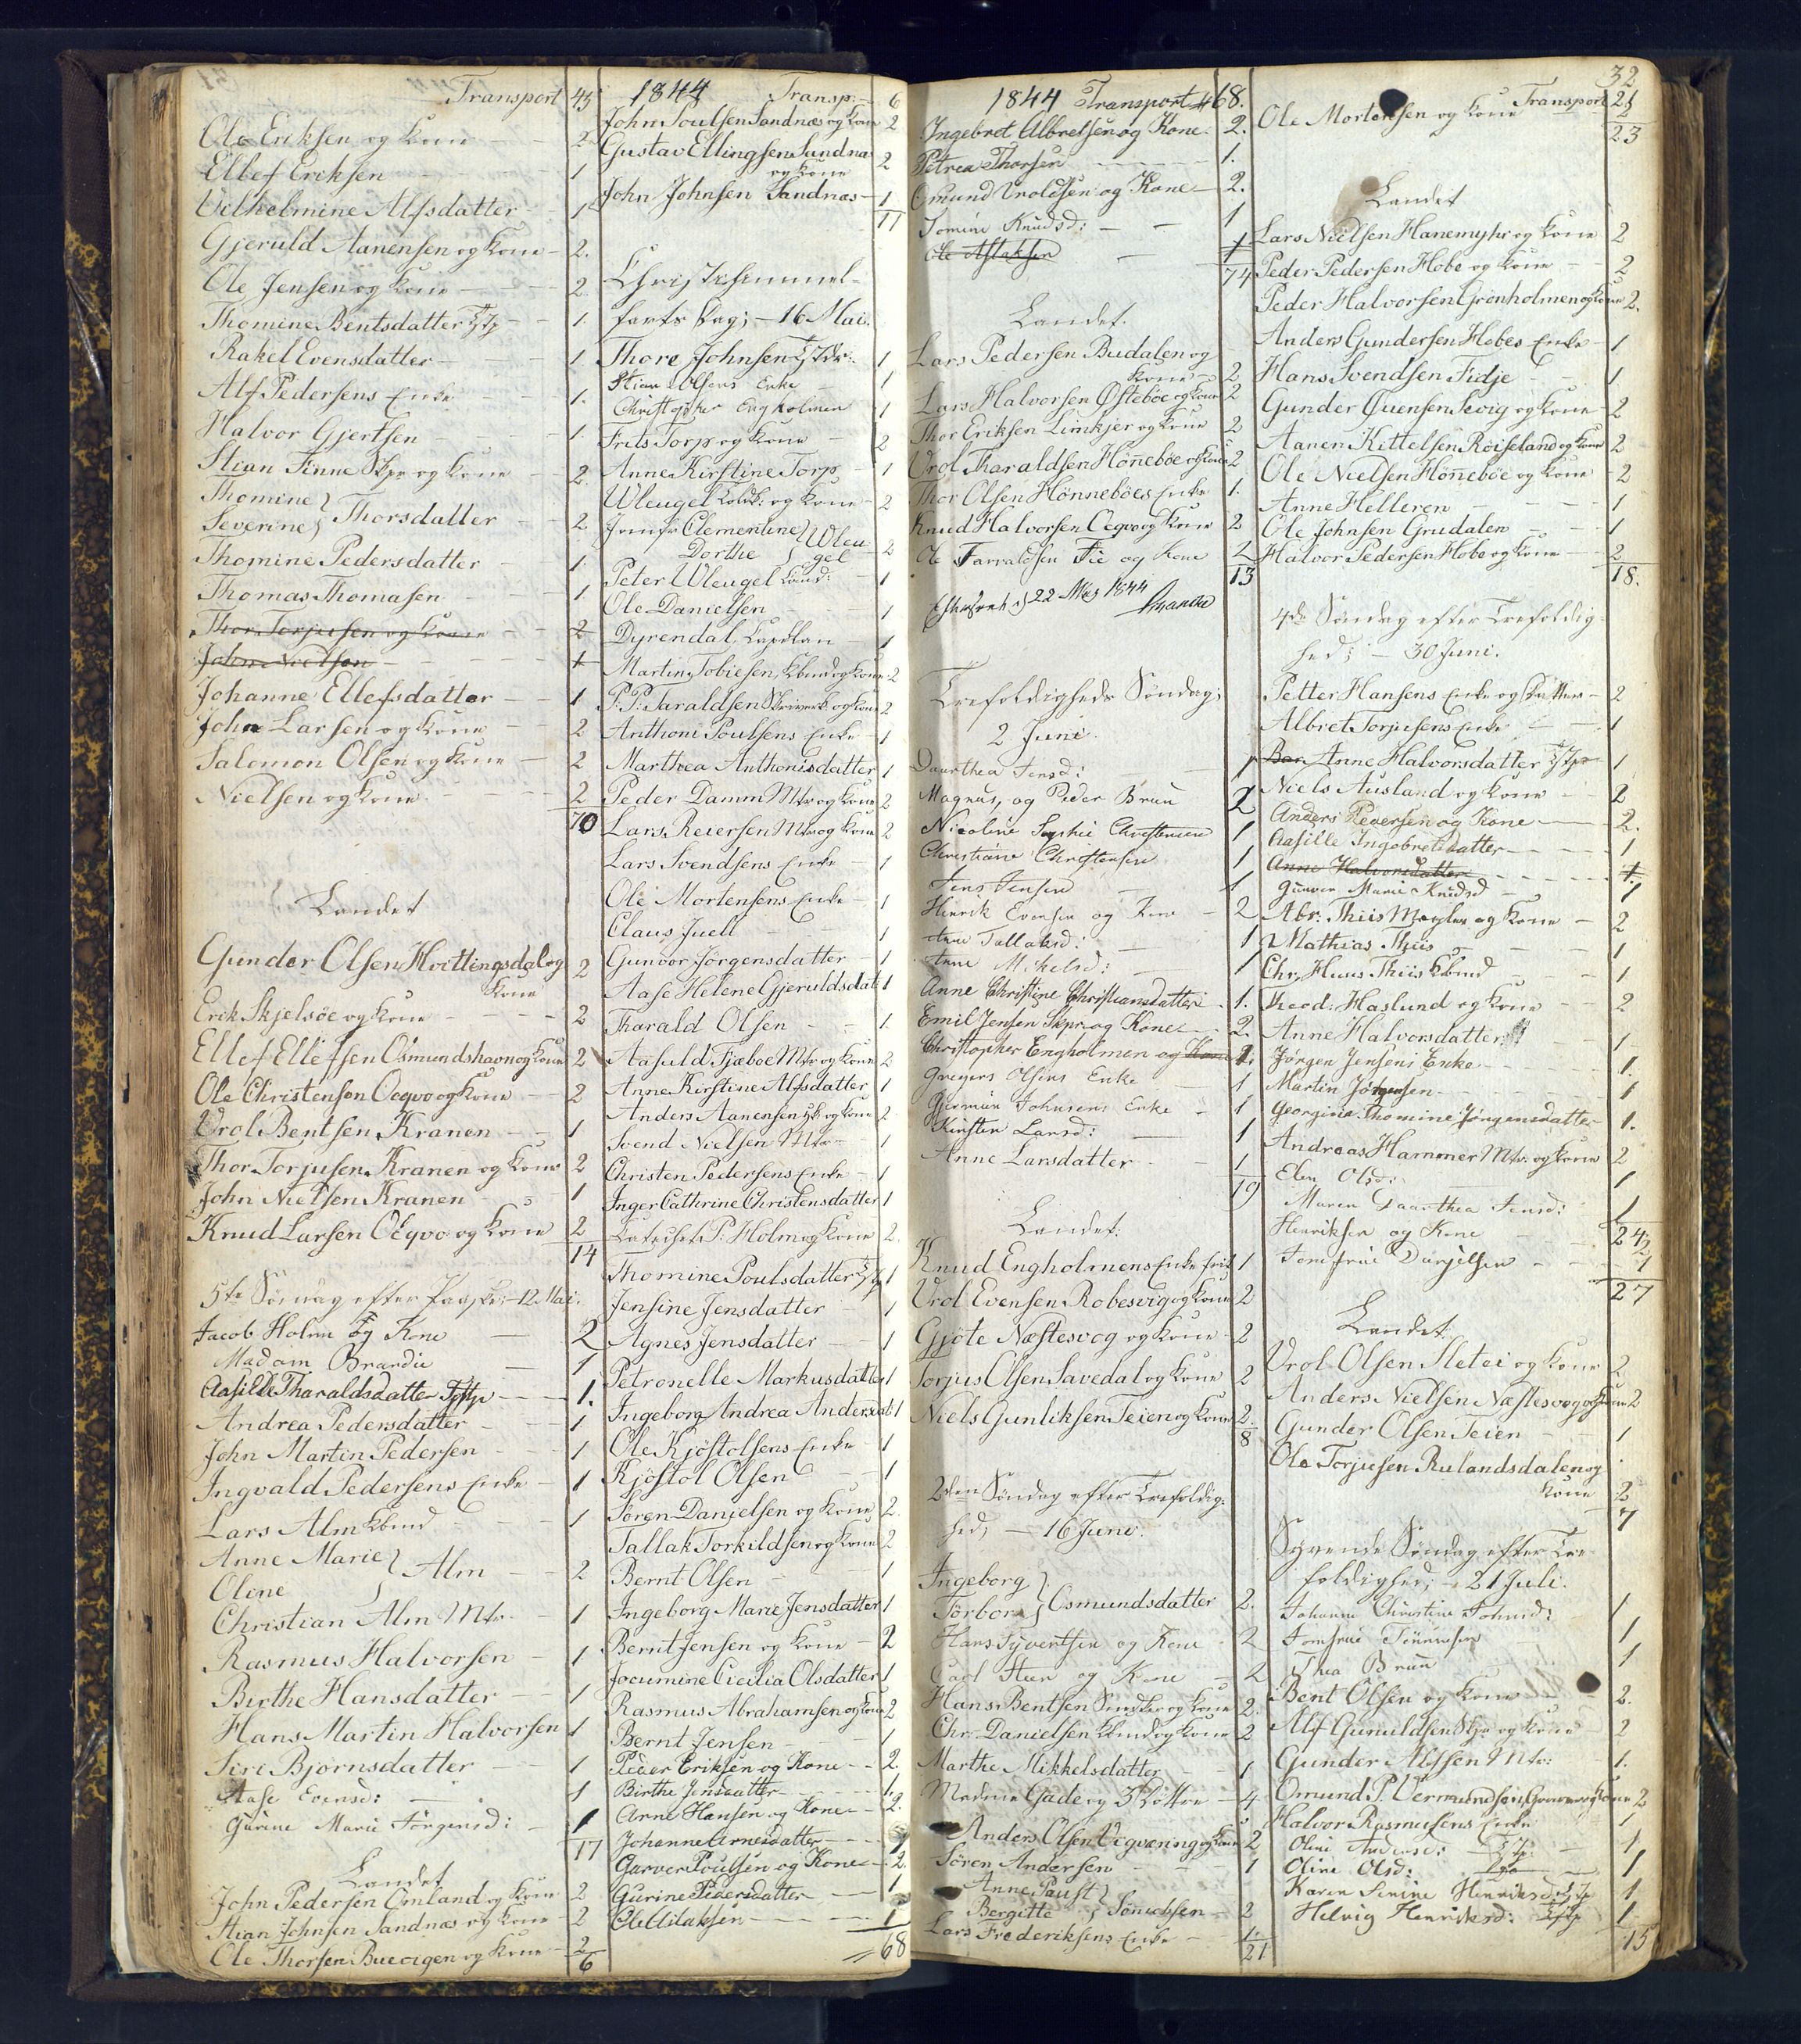 Transport 45
Ole Eriksen og Kone 2
Ellef Eriksen 1
Vilhelmine Alfsdatter 1
Gjeruld Aanensen og Kone 2.
Ole Jensen og Kone 2
Thomine Bentsdatter Tj Tp 1.
Rakel Evensdatter 1
Alf Pedersens Enke 1.
Halvor Gjertsen 1
Stian Finne Skpr og Kone 2.
Thomine }
Severine } Thorsdatter 2
Thomine Pedersdatter 1.
Thomas Thomasen 1
Thor Torjusen og Kone 2
John Nielsen 1
Johanne Ellefsdatter 1
John Larsen og Kone 2
Salomon Olsen og Kone 2
Nielsen og Kone 2
70
Landet
Gunder Olsen Hvittingsdal og
Kone 2
Erik Skjelsöe og Kone 2
Ellef Ellefsen Osmundshavn og Kone 2
Ole Christensen Ocqvo og Kone 2
Vrol Bentsen Kranen 1
Thor Torjusen Kranen og Kone 2
John Nielsen Kranen 1
Knud Larsen Ocqvo og Kone 2
14
5te Søndag efter Paaske; 12 Mai.
Jacob Holm og Kone 2
Madam Brandie 1
Aasille Tharaldsdatter Tjstp 1.
Andrea Pedersdatter 1
John Martin Pedersen 1
Ingvald Pedersens Enke 1
Lars Alm Kbmd 1
Anne Marie }
Oline } Alm 2
Christian Alm Mtr. 1
Rasmus Halvorsen 1
Birthe Hansdatter 1
Hans Martin Halvorsen 1
Siri Bjørnsdatter 1
Aase Evensd: 1
Gurine Marie Jörgensd: 1
17
Landet
John Pedersen Omland og Kone 2
Stian Johnsen Sandnæs og Kone 2
Ole Thorsen Buevigen og Kone 2
6
1844 Transp: 6
John Poulsen Sandnæs og Kone 2
Gustav Ellingsen Sandnæs
og Kone 2
John Johnsen Sandnæs 1
11
Christi Himmel-
farts Dag; - 16 Mai.
Thore Johnsen Tj Tdr. 1
Stian Olsens Enke 1
Christopher Engholmen 1
Frits Torp og Kone 2
Anne Kirstine Torp 1
Wleugel Lods: og Kone 2
Jomfr Clementine }
Dorthe } Wleugel 2
Peter Wleugel Cand: 1
Ole Danielsen 1
Dyrendal Capellan 1
Martin Tobiesen, Kbmd og Kone 2
P. P. Taraldsen Skriverk. og Kone 2
Anthoni Poulsens Enke 1
Marthea Anthonisdatter 1
Peder Damm Mtr og Kone 2
Lars Reiersen Mtr og Kone 2
Lars Svendsens Enke 1
Ole Mortensens Enke 1
Claus Juell 1
Gunvor Jørgensdatter 1
Aase Helene Gjeruldsdat 1
Tharald Olsen 1.
Aasuld Fjæboe Mtr og Kone 2
Anne Kirstine Alfsdatter 1
Anders Aanensen og Kone 2
Svend Nielsen Mtr 1
Christen Pedersens Enke 1
Inger Cathrine Christensdatter 1
P: Holm og Kone 2.
Thomine Poulsdatter Tj 1
Jensine Jensdatter 1
Agnes Jensdatter 1
Petronelle Markusdatter 1
Ingeborg Andrea Andersdat 1
Ole Kjöstolsens Enke 1
Kjöstol Olsen 1
Søren Danielsen og Kone 2.
Tallak Torkildsen og Kone 2
Bernt Olsen 1
Ingeborg Marie Jensdatter 1
Bernt Jensen og Kone 2
Jocumine Cicilia Olsdatter 1
Rasmus Abrahamsen og Kone 2
Bernt Jensen 1
Peder Eriksen og Kone 2.
Birthe Jensdatter 1.
Arne Hansen og Kone 2.
Johanne Arnesdatter 1
Garver Poulsen og Kone 2.
Gurine Pedersdatter 1
Ole Aslaksen 1
68
1844 Transport 68.
Ingebret Albretsen og Kone 2.
Petrea Thorsen 1.
Omund Vroldsen og Kone 2.
Tomine Knudsd: 1
Ole Aslaksen 1
74
Landet.
Lars Pedersen Budalen og
Kone 2
Lars Halvorsen Østebøe og Kone 2
Thor Eriksen Limkjer og Kone 2
Vrol Tharaldsen Hönneböe og Kone 2
Thor Olsen Hönneböes Enke 1.
Knud Halvorsen Ocqvo og Kone 2
Ole Tarraldsen Fie og Kone 2
13
22 Mai 1844
Trefoldigheds Søndag;
2 Juni.
Daarthea Jensd: 1
Magnus, og Peder Brun 2
Nicoline Sophie Christensen 1
Christiane Christensen 1
Jens Jensen 1
Henrik Evensen og Kone 2
Ane Tallaksd: 1
Ane Mikelsd: 1
Anne Christine Christiansdatter 1.
Emil Jensen Skpr. og Kone 2.
Christopher Engholmen og Kone 1.
Gregers Olsens Enke 1
Johnsens Enke 1
Kirsten Larsd: 1
Anne Larsdatter 1
19
Landet.
Knud Engholmens Enke frit 1
Vrol Evensen Robesvig og Kone 2
Gjöte Næstesvog og Kone 2
Torjus Olsen Savedal og Kone 2
Niels Gunliksen Teien og Kone 2.
8
2den Søndag efter Trefoldig-
hed; - 16 Juni.
Ingeborg }
Törbor } Osmundsdatter 2.
Hans Syvertsen og Kone 2
Carl Steen og Kone 2
Hans Bentsen Snedker og Kone 2.
Chr. Danielsen Kbmd og Kone 2
Marthe Mikkelsdatter 1
Madame Gade og 3 Döttre 4
Anders Olsen Vegværing og Kone 2
Søren Andersen 1
Anne Paust }
Bergitte } Sönichsen 2
Lars Frederiksens Enke 1.
21
32
Transport 21
Ole Mortensen og Kone 2
23
Landet
Lars Nielsen Hanemyhr og Kone 2
Peder Pedersen Hobe og Kone 2
Peder Halvorsen Grønholmen og Kone 2.
Anders Gundersen Hobes Enke 1
Hans Svendsen Fidje 1
Gunder Qvensen Sevig og Kone 2
Aanen Kittelsen Røiseland og Kone 2
Ole Nielsen Hönneböe og Kone 2
Anne Helleren 1
Ole Johnsen Grudalen 1
Halvor Pedersen Hobe og Kone 2
18.
4de Søndag efter Trefoldig-
hed; - 30 Juni.
Petter Hansens Enke og Datter 2
Albret Torjusens Enke 1
Anne Halvorsdatter Tj Tp 1
Niels Ausland og Kone 2
Anders Reiersen og Kone 2.
Aasille Ingebretsdatter 1
Anne Halvorsdatter 1.
Gunvor Marie Knudsd 1
Abr. Thiis Mægler og Kone 2
Mathias Thiis 1
Chr. Huus Thiis Kbmd 1
Theod: Haslund og Kone 2
Anne Halvorsdatter 1
Jørgen Jensens Enke 1.
Martin Jørgensen 1
Georgine Thomine Jörgensdatter 1.
Andreas Hammer Mtr. og Kone 2
Elen Olsd: 1
Maren Daarthea Jensd: 1
Henriksen og Kone 2
24
Jomfrue Danjelsen 1
27
Landet
Vrol Olsen Sletei og Kone 2
Anders Nielsen Næstesvog og Kone 2
Gunder Olsen Teien 1
Ole Torjusen Rulandsdalen og
Kone 2
7
Syvende Søndag efter Tre-
foldighed; - 21 Juli.
Johanne Christine Johnsd: 1
Jomfrue Tönnesen 1
Thea Brun 1
Bent Olsen og Kone 2.
Alf Guruldsen Skpr og Kone 2
Gunder Alfsen Mtr: 1.
Omund P. Vermundsen og Kone 2
Halvor Rasmusens Enke 1
Oline Andersd: Tj Tp. 1
Oline Olsd: 1
Karen Serine Henriksd: Tj Tp 1
Helvig Henriksd: Tjtp 1
15